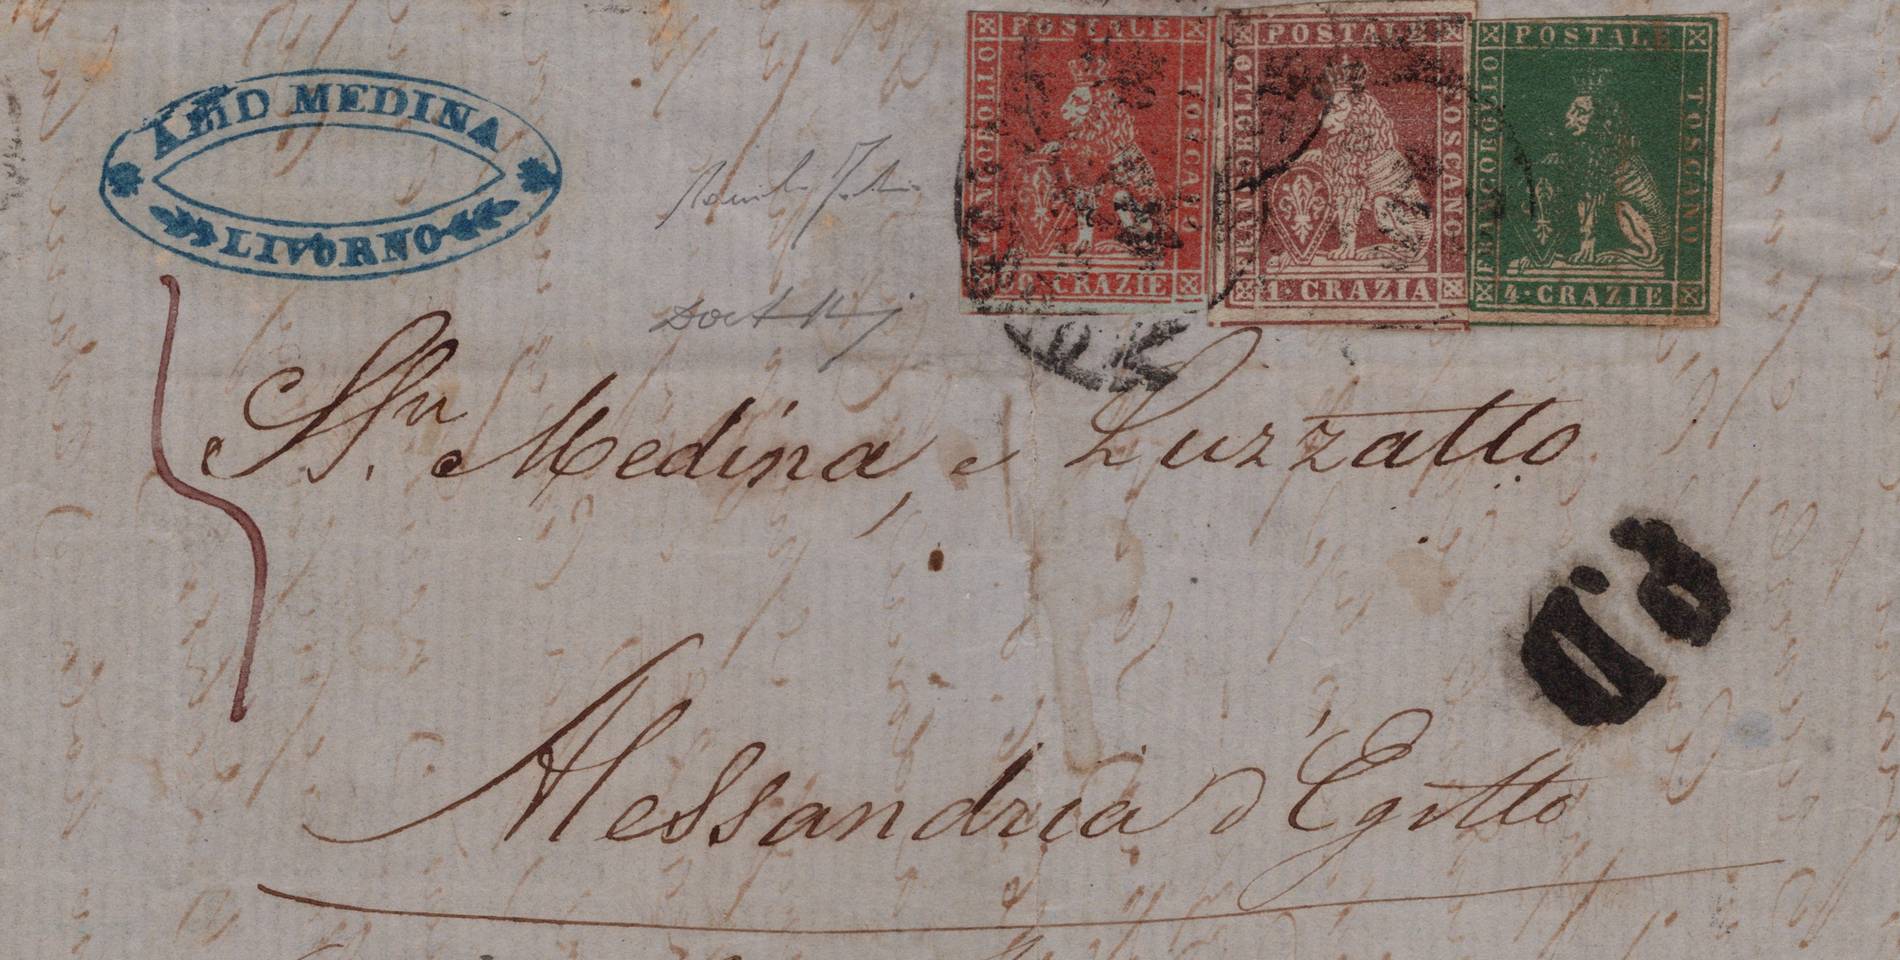 MEDINA
LIVORNO
FRANCOBOLLO POSTALE TOSCANO
CRAZIE
FRANCOBOLLO POSTALE TOSCANO
1·CRAZIA
FRANCOBOLLO POSTALE TOSCANO
4·CRAZIE
Medina, e Luzzatto
P.D.
Alessandria d'Egitto